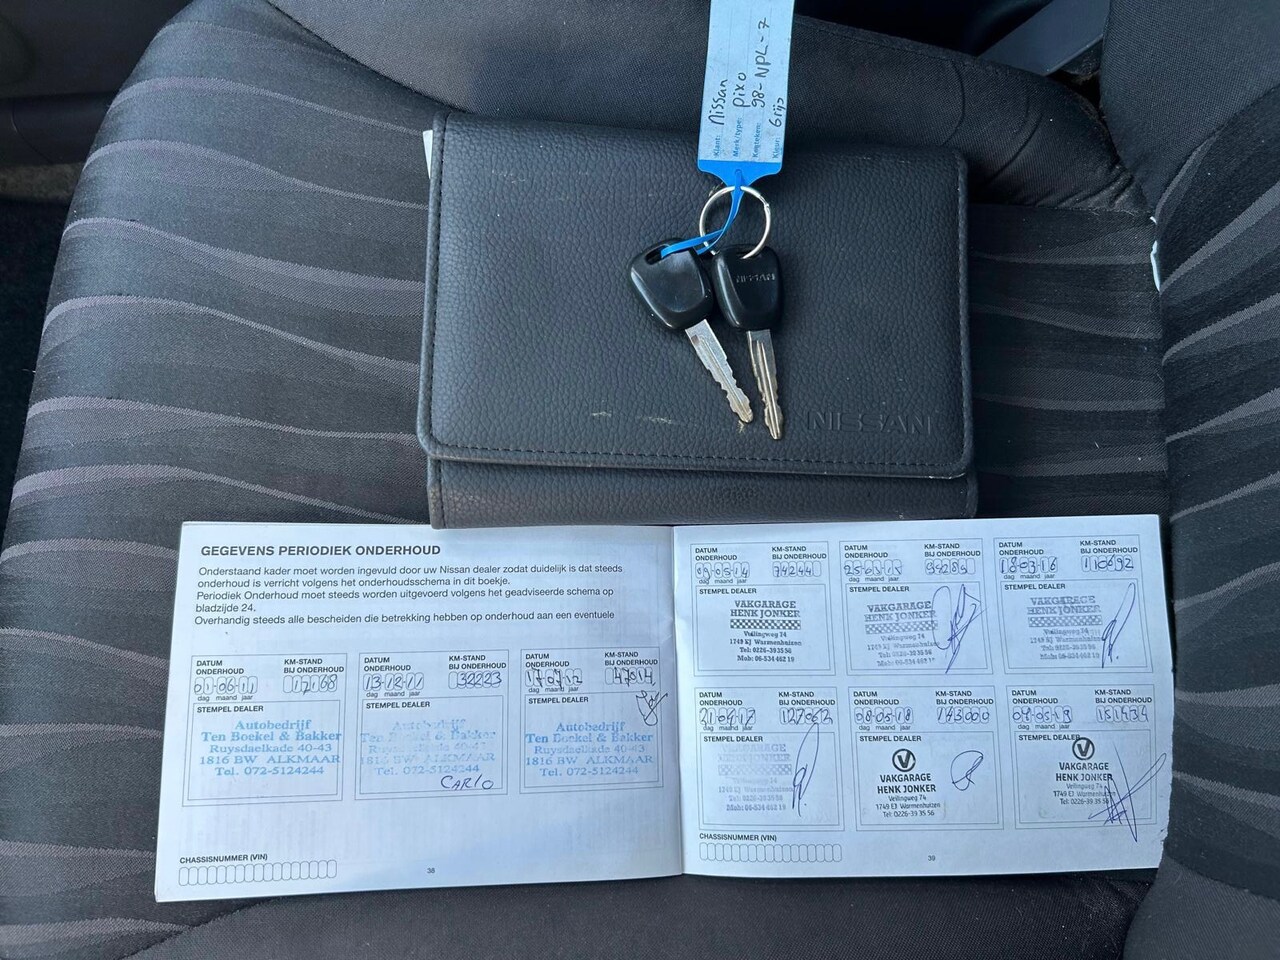 Klant: Nissan
Merk/type: pixo
Kenteken: 98-NPL-7
Kleur: Grijs
NISSAN
NISSAN
GEGEVENS PERIODIEK ONDERHOUD
Onderstaand kader moet worden ingevuld door uw Nissan dealer zodat duidelijk is dat steeds
onderhoud is verricht volgens het onderhoudsschema in dit boekje.
Periodiek Onderhoud moet steeds worden uitgevoerd volgens het geadviseerde schema op
bladzijde 24.
Overhandig steeds alle bescheiden die betrekking hebben op onderhoud aan een eventuele
DATUM ONDERHOUD
KM-STAND BIJ ONDERHOUD
01 06 11
12168
dag maand jaar
STEMPEL DEALER
Autobedrijf
Ten Boekel & Bakker
Ruysdaelkade 40-43
1816 BW ALKMAAR
Tel. 072-5124244
DATUM ONDERHOUD
KM-STAND BIJ ONDERHOUD
13 12 11
32223
dag maand jaar
STEMPEL DEALER
Autobedrijf
Ten Boekel & Bakker
Ruysdaelkade 40-43
1816 BW ALKMAAR
Tel. 072-5124244
CARLO
DATUM ONDERHOUD
KM-STAND BIJ ONDERHOUD
17 07 12
47014
dag maand jaar
STEMPEL DEALER
Autobedrijf
Ten Boekel & Bakker
Ruysdaelkade 40-43
1816 BW ALKMAAR
Tel. 072-5124244
CHASSISNUMMER (VIN)
38
DATUM ONDERHOUD
KM-STAND BIJ ONDERHOUD
09 05 14
74244
dag maand jaar
STEMPEL DEALER
VAKGARAGE
HENK JONKER
Veilingweg 74
1749 EJ Warmenhuizen
Tel: 0226-39 35 56
Mob: 06-534 462 19
DATUM ONDERHOUD
KM-STAND BIJ ONDERHOUD
25 03 15
dag maand jaar
STEMPEL DEALER
VAKGARAGE
HENK JONKER
Veilingweg 74
1749 EJ Warmenhuizen
Tel: 0226-39 35 56
Mob: 06-534 462 19
DATUM ONDERHOUD
KM-STAND BIJ ONDERHOUD
18 03 16
110692
dag maand jaar
STEMPEL DEALER
VAKGARAGE
HENK JONKER
Veilingweg 74
1749 EJ Warmenhuizen
Tel: 0226-39 35 56
Mob: 06-534 462 19
DATUM ONDERHOUD
KM-STAND BIJ ONDERHOUD
21 04 17
127062
dag maand jaar
STEMPEL DEALER
VAKGARAGE
HENK JONKER
Tel: 0226-39 35 56
Mob: 06-534 462 19
DATUM ONDERHOUD
KM-STAND BIJ ONDERHOUD
08 05 18
143000
dag maand jaar
STEMPEL DEALER
V
VAKGARAGE
HENK JONKER
Veilingweg 74
1749 EJ Warmenhuizen
Tel: 0226-39 35 56
DATUM ONDERHOUD
KM-STAND BIJ ONDERHOUD
09 05 19
151434
dag maand jaar
STEMPEL DEALER
V
VAKGARAGE
HENK JONKER
Veilingweg 74
1749 EJ Warmenhuizen
Tel: 0226-39 35 56
CHASSISNUMMER (VIN)
39